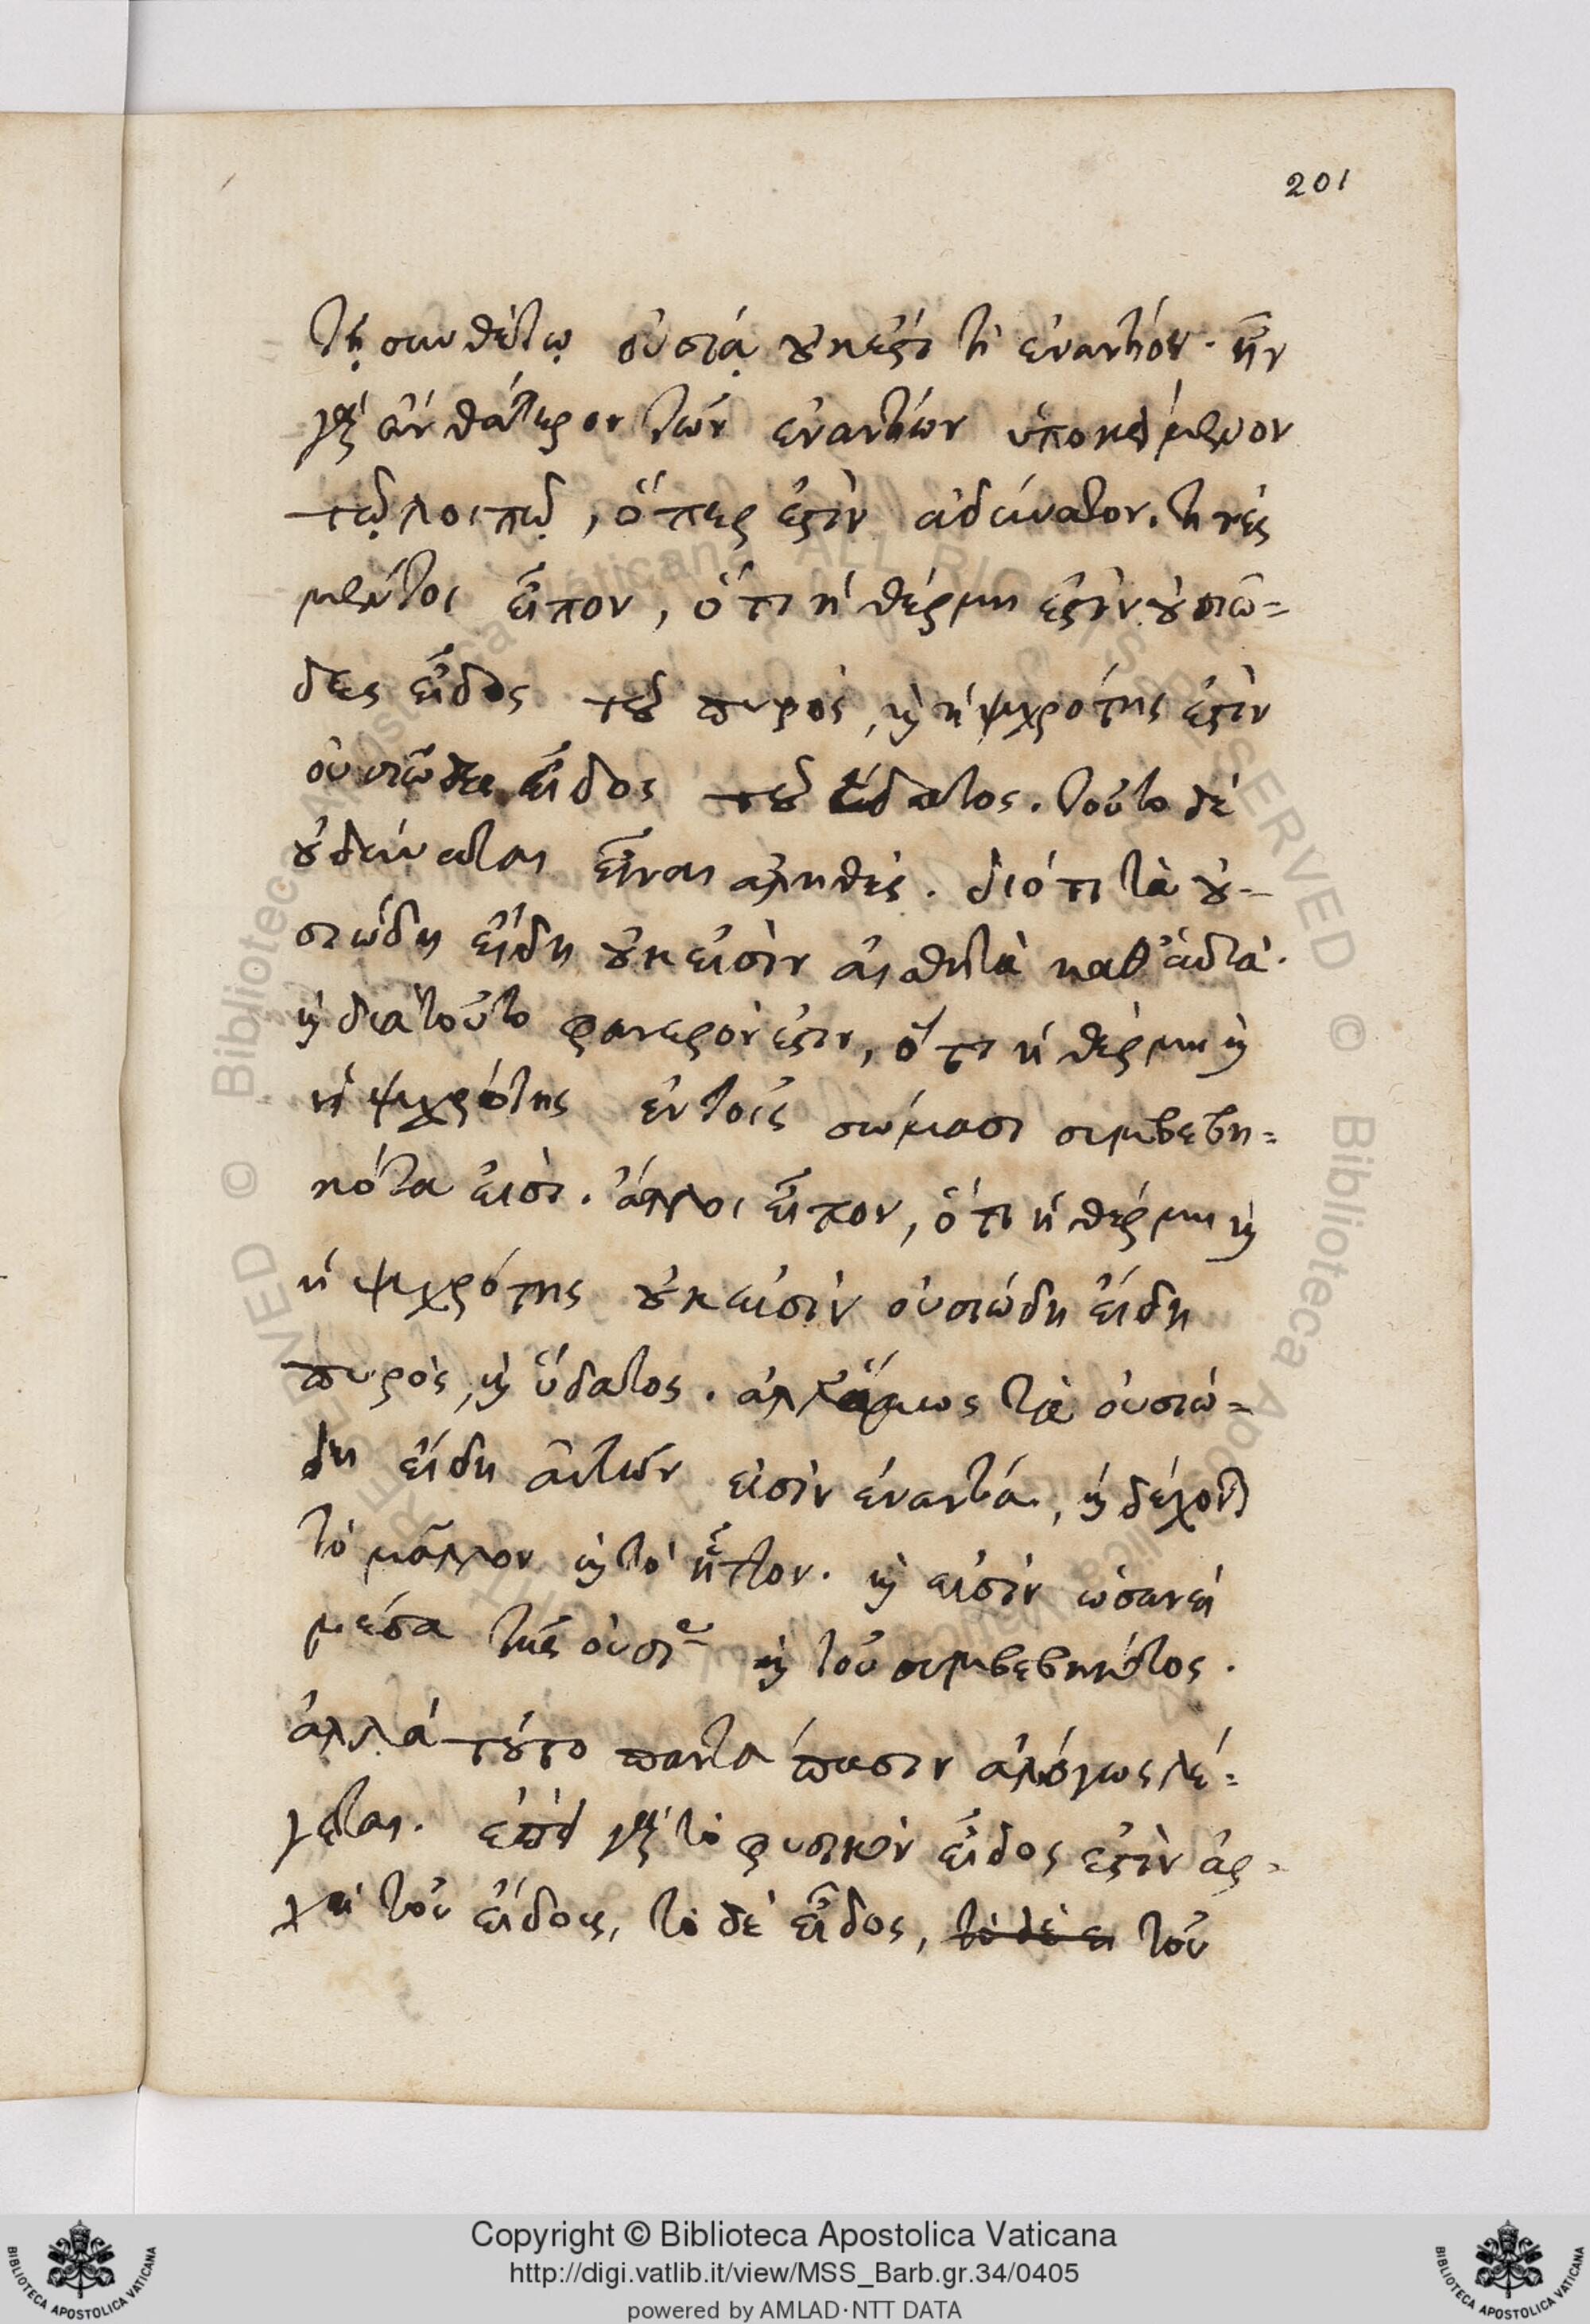 201
τῇ συνθέτῳ οὐσίᾳ οὐκ ἔστι τὶ ἐναντίον. ἦν
γὰρ ἂν θάτερον τῶν ἐναντίων ὑποκείμενον
τῷ λοιπῷ, ὅπερ ἐστὶν ἀδύνατον. τινὲς
μέντοι εἶπον, ὅτι ἡ θέρμη ἐστὶν οὐσιῶ=
δες εἶδος τοῦ πυρὸς, καὶ ἡ ψυχρότης ἐστὶν
οὐσιῶδες εἶδος τοῦ ὕδατος. τοῦτο δὲ
οὐ δύναται εἶναι ἀληθές. διότι τὰ οὐ-
σιώδη εἴδη οὐκ εἰσὶν αἰσθητὰ καθ' αὑτά.
καὶ διὰ τοῦτο φανερόν ἐστιν, ὅτι ἡ θέρμη καὶ
ἡ ψυχρότης ἐν τοῖς σώμασι συμβεβη=
κότα εἰσί. ἄλλοι εἶπον, ὅτι ἡ θέρμη καὶ
ἡ ψυχρότης οὐκ εἰσὶν οὐσιώδη εἴδη
πυρὸς, καὶ ὕδατος. ἀλλ' ὅμως τὰ οὐσιώ=
δη εἴδη αὐτῶν εἰσὶν ἐναντία, καὶ δέχονται
τὸ μᾶλλον καὶ τὸ ἧττον. καὶ εἰσὶν ὡσανεὶ
μέσα τῆς οὐσίας καὶ τοῦ συμβεβηκότος.
ἀλλὰ τοῦτο παντάπασιν ἀλόγως λέ=
γεται. ἐπεὶ γὰρ τὸ φυσικὸν εἶδος ἐστὶν ἀρ-
χὴ τοῦ εἴδους, τὸ δὲ εἶδος, τὸ δὲ ει τοῦ
Copyright © Biblioteca Apostolica Vaticana
http://digi.vatlib.it/view/MSS_Barb.gr.34/0405
powered by AMLAD·NTT DATA